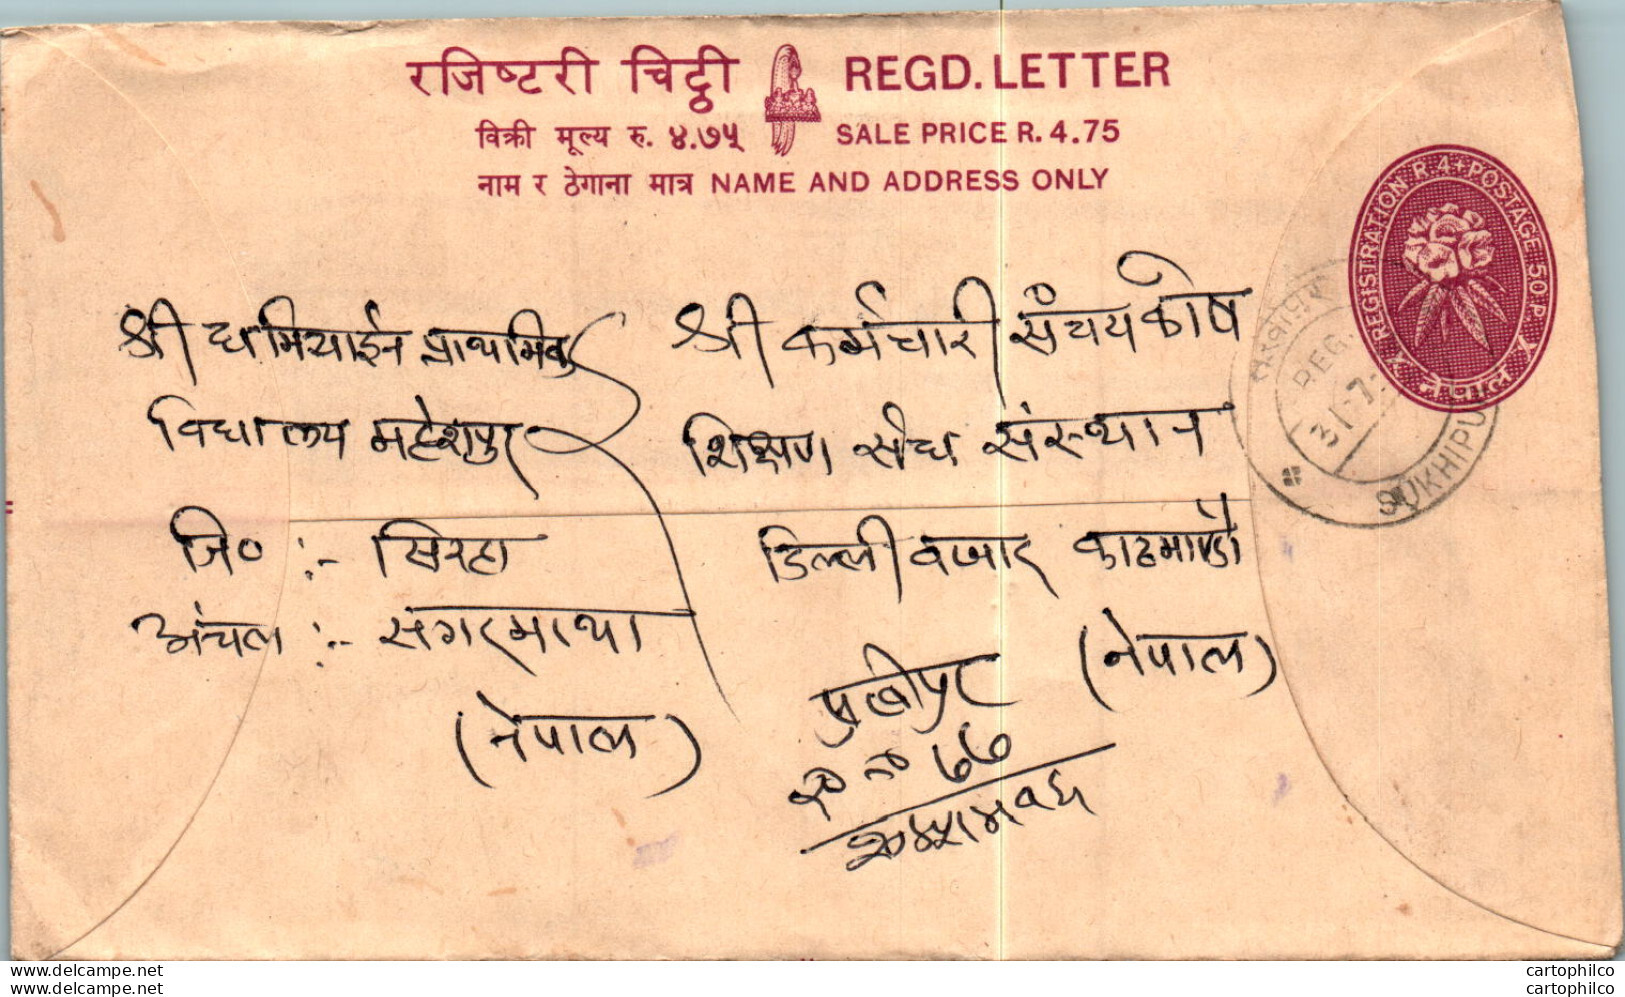 रजिष्टरी चिट्ठी REGD. LETTER
विक्री मूल्य रु. ४.७५ SALE PRICE R. 4.75
नाम र ठेगाना मात्र NAME AND ADDRESS ONLY
REGISTRATION R.4+POSTAGE 50 P.
नेपाल
REG.
31-7
SUKHIPU
श्री धमियाईन प्राथमिक
विद्यालय महेशपुर
जि० :- सिरहा
अंचल :- सगरमाथा
(नेपाल)
श्री कर्मचारी संचयकोष
शिक्षण संघ संस्थान
डिल्लीवजार काठमाण्डौ
(नेपाल)
delcampe.net
delcampe.net
cartophilco
cartophilco